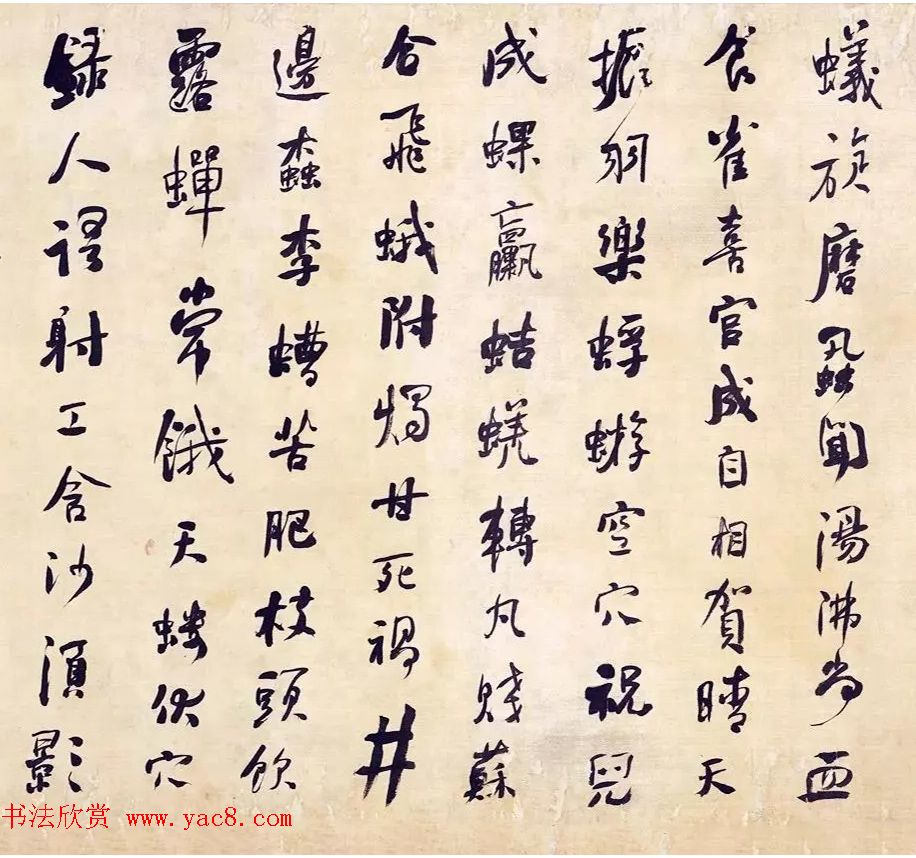 蟻旋磨蝨聞湯沸尚血
食雀喜宮成自相賀晴天
振羽樂蜉蝣空穴祝兒
成蜾蠃蛣蜣轉丸賤蘇
合飛蛾附燭甘死禍井
邊蠹李螬苦肥枝頭飲
露蟬常餓天螻伏穴
録人語射工含沙須影
书法欣赏 www.yac8.com